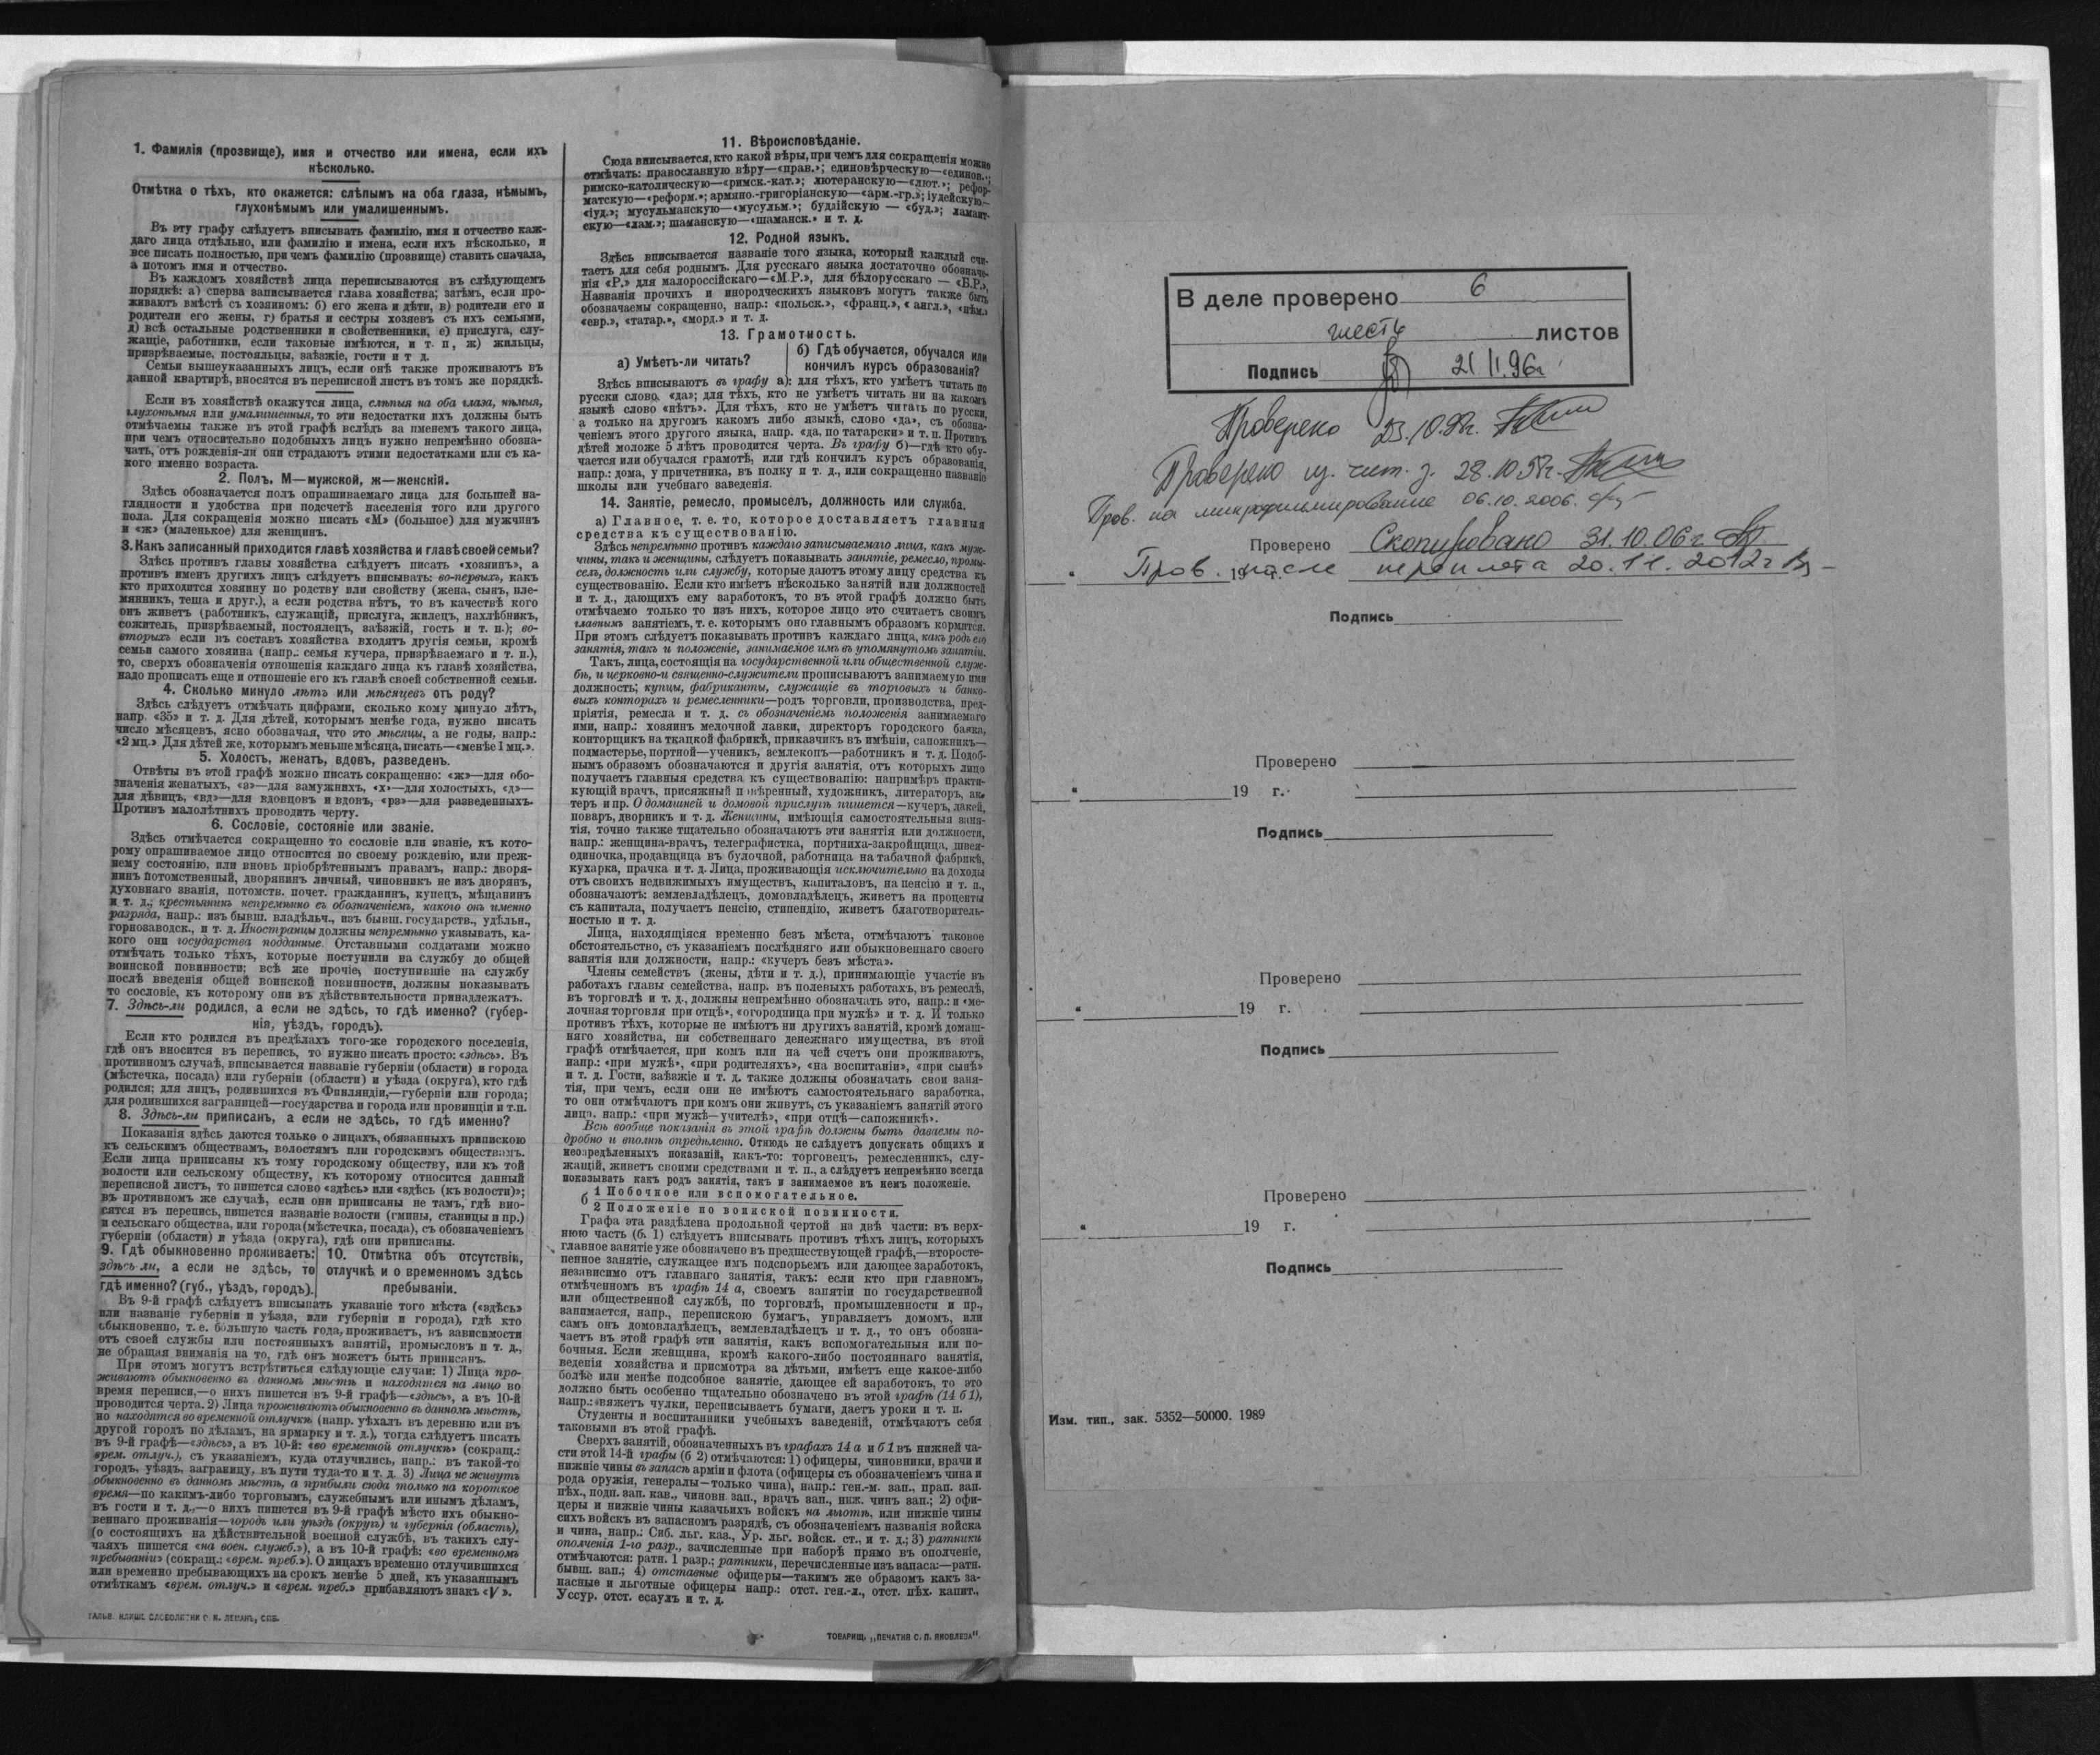 1. Фамилія (прозвище), имя и отчество или имена, если ихъ
нѣсколько.
Отмѣтка о тѣхъ, кто окажется: слѣпымъ на оба глаза, нѣмымъ,
глухонѣмымъ или умалишеннымъ.
Въ эту графу слѣдуетъ вписывать фамилію, имя и отчество каж-
даго лица отдѣльно, или фамилію и имена, если ихъ нѣсколько, и
все писать полностью, при чемъ фамилію (прозвище) ставить сначала,
а потомъ имя и отчество.
Въ каждомъ хозяйствѣ лица переписываются въ слѣдующемъ
порядкѣ: а) сперва записывается глава хозяйства; затѣмъ, если про-
живаютъ вмѣстѣ съ хозяиномъ: б) его жена и дѣти, в) родители его и
родители его жены, г) братья и сестры хозяевъ съ ихъ семьями,
д) всѣ остальные родственники и свойственники, е) прислуга, слу-
жащіе, работники, если таковые имѣются, и т. п, ж) жильцы,
призрѣваемые, постояльцы, заѣзжіе, гости и т д.
Семьи вышеуказанныхъ лицъ, если онѣ также проживаютъ въ
данной квартирѣ, вносятся въ переписной листъ въ томъ же порядкѣ.
Если въ хозяйствѣ окажутся лица, слѣпыя на оба глаза, нѣмыя,
глухонѣмыя или умалишенныя, то эти недостатки ихъ должны быть
отмѣчаемы также въ этой графѣ вслѣдъ за именемъ такого лица,
при чемъ относительно подобныхъ лицъ нужно непремѣнно обозна-
чать, отъ рожденія-ли они страдаютъ этими недостатками или съ ка-
кого именно возраста.
2. Полъ, М—мужской, ж—женскій.
Здѣсь обозначается полъ опрашиваемаго лица для большей на-
глядности и удобства при подсчетѣ населенія того или другого
пола. Для сокращенія можно писать «М» (большое) для мужчинъ
и «ж» (маленькое) для женщинъ.
3. Какъ записанный приходится главѣ хозяйства и главѣ своей семьи?
Здѣсь противъ главы хозяйства слѣдуетъ писать «хозяинъ», а
противъ именъ другихъ лицъ слѣдуетъ вписывать: во-первыхъ, какъ
кто приходится хозяину по родству или свойству (жена, сынъ, пле-
мянникъ, теща и друг.), а если родства нѣтъ, то въ качествѣ кого
онъ живетъ (работникъ, служащій, прислуга, жилецъ, нахлѣбникъ,
сожитель, призрѣваемый, постоялецъ, заѣзжій, гость и т. п.); во-
вторыхъ если въ составъ хозяйства входятъ другія семьи, кромѣ
семьи самого хозяина (напр.: семья кучера, призрѣваемаго и т. п.),
то, сверхъ обозначенія отношенія каждаго лица къ главѣ хозяйства,
надо прописать еще и отношеніе его къ главѣ своей собственной семьи.
4. Сколько минуло лѣтъ или мѣсяцевъ отъ роду?
Здѣсь слѣдуетъ отмѣчать цифрами, сколько кому минуло лѣтъ,
напр. «35» и т. д. Для дѣтей, которымъ менѣе года, нужно писать
число мѣсяцевъ, ясно обозначая, что это мѣсяцы, а не годы, напр.:
«2 мц.» Для дѣтей же, которымъ меньше мѣсяца, писать—«менѣе 1 мц.».
5. Холостъ, женатъ, вдовъ, разведенъ.
Отвѣты въ этой графѣ можно писать сокращенно: «ж»—для обо-
значенія женатыхъ, «з»—для замужнихъ, «х»—для холостыхъ, «д»—
для дѣвицъ, «вд»—для вдовцовъ и вдовъ, «рв»—для разведенныхъ.
Противъ малолѣтнихъ проводить черту.
6. Сословіе, состояніе или званіе.
Здѣсь отмѣчается сокращенно то сословіе или званіе, къ кото-
рому опрашиваемое лицо относится по своему рожденію, или преж-
нему состоянію, или вновь пріобрѣтеннымъ правамъ, напр.: дворя-
нинъ потомственный, дворянинъ личный, чиновникъ не изъ дворянъ,
духовнаго званія, потомств. почет. гражданинъ, купецъ, мѣщанинъ
и т. д.; крестьянинъ непремѣнно съ обозначеніемъ, какого онъ именно
разряда, напр.: изъ бывш. владѣльч., изъ бывш. государств., удѣльн.,
горнозаводск., и т. д. Иностранцы должны непремѣнно указывать, ка-
кого они государства подданные. Отставными солдатами можно
отмѣчать только тѣхъ, которые поступили на службу до общей
воинской повинности; всѣ же прочіе, поступившіе на службу
послѣ введенія общей воинской повинности, должны показывать
то сословіе, къ которому они въ дѣйствительности принадлежатъ.
7. Здѣсь-ли родился, а если не здѣсь, то гдѣ именно? (губер-
нія, уѣздъ, городъ).
Если кто родился въ предѣлахъ того-же городского поселенія,
гдѣ онъ вносится въ перепись, то нужно писать просто: «здѣсь». Въ
противномъ случаѣ, вписывается названіе губерніи (области) и города
(мѣстечка, посада) или губерніи (области) и уѣзда (округа), кто гдѣ
родился; для лицъ, родившихся въ Финляндіи,—губерніи или города;
для родившихся заграницей—государства и города или провинціи и т.п.
8. Здѣсь-ли приписанъ, а если не здѣсь, то гдѣ именно?
Показанія здѣсь даются только о лицахъ, обязанныхъ припискою
къ сельскимъ обществамъ, волостямъ или городскимъ обществамъ.
Если лица приписаны къ тому городскому обществу, или къ той
волости или сельскому обществу, къ которому относится данный
переписной листъ, то пишется слово «здѣсь» или «здѣсь (къ волости)»;
въ противномъ же случаѣ, если они приписаны не тамъ, гдѣ вно-
сятся въ перепись, пишется названіе волости (гмины, станицы и пр.)
и сельскаго общества, или города (мѣстечка, посада), съ обозначеніемъ
губерніи (области) и уѣзда (округа), гдѣ они приписаны.
9. Гдѣ обыкновенно проживаетъ:
здѣсь-ли, а если не здѣсь, то
гдѣ именно? (губ., уѣздъ, городъ).
10. Отмѣтка объ отсутствіи,
отлучкѣ и о временномъ здѣсь
пребываніи.
Въ 9-й графѣ слѣдуетъ вписывать указаніе того мѣста («здѣсь»
или названіе губерніи и уѣзда, или губерніи и города), гдѣ кто
обыкновенно, т. е. большую часть года, проживаетъ, въ зависимости
отъ своей службы или постоянныхъ занятій, промысловъ и т. д.,
не обращая вниманія на то, гдѣ онъ можетъ быть приписанъ.
При этомъ могутъ встрѣтиться слѣдующіе случаи: 1) Лица про-
живаютъ обыкновенно въ данномъ мѣстѣ и находятся на лицо во
время переписи,—о нихъ пишется въ 9-й графѣ—«здѣсь», а въ 10-й
проводится черта. 2) Лица проживаютъ обыкновенно въ данномъ мѣстѣ,
но находятся во временной отлучкѣ (напр. уѣхалъ въ деревню или въ
другой городъ по дѣламъ, на ярмарку и т. д.), тогда слѣдуетъ писать
въ 9-й графѣ—«здѣсь», а въ 10-й: «во временной отлучкѣ» (сокращ.:
врем. отлуч.), съ указаніемъ, куда отлучились, напр.: въ такой-то
городъ, уѣздъ, заграницу, въ пути туда-то и т. д. 3) Лица не живутъ
обыкновенно въ данномъ мѣстѣ, а прибыли сюда только на короткое
время—по какимъ-либо торговымъ, служебнымъ или инымъ дѣламъ,
въ гости и т. д.,—о нихъ пишется въ 9-й графѣ мѣсто ихъ обыкно-
веннаго проживанія—городъ или уѣздъ (округъ) и губернія (область),
(о состоящихъ на дѣйствительной военной службѣ, въ такихъ слу-
чаяхъ пишется «на воен. служб.»), а въ 10-й графѣ: «во временномъ
пребываніи» (сокращ.: «врем. преб.»). О лицахъ временно отлучившихся
или временно пребывающихъ на срокъ менѣе 5 дней, къ указаннымъ
отмѣткамъ «врем. отлуч.» и «врем. преб.» прибавляютъ знакъ «V».
11. Вѣроисповѣданіе.
Сюда вписывается, кто какой вѣры, при чемъ для сокращенія можно
отмѣчать: православную вѣру—«прав.»; единовѣрческую—«единов.»;
римско-католическую—«римск.-кат.»; лютеранскую—«лют.»; рефор-
матскую—«реформ.»; армяно.-григоріанскую—«арм.-гр.»; іудейскую—
«іуд.»; мусульманскую—«мусульм.»; буддійскую — «буд.»; ламаит-
скую—«лам.»; шаманскую—«шаманск.» и т. д.
12. Родной языкъ.
Здѣсь вписывается названіе того языка, который каждый счи-
таетъ для себя роднымъ. Для русскаго языка достаточно обозначе-
нія «Р.» для малороссійскаго—«М.Р.», для бѣлорусскаго — «Б.Р.»,
Названія прочихъ и инородческихъ языковъ могутъ также быть
обозначаемы сокращенно, напр.: «польск.», «франц.», «англ.», «нѣм.»
«евр.», «татар.», «морд.» и т. д.
13. Грамотность.
а) Умѣетъ-ли читать?
б) Гдѣ обучается, обучался или
кончилъ курсъ образованія?
Здѣсь вписываютъ въ графу а): для тѣхъ, кто умѣетъ читать по
русски слово, «да»; для тѣхъ, кто не умѣетъ читать ни на какомъ
языкѣ слово «нѣтъ». Для тѣхъ, кто не умѣетъ читать по русски,
а только на другомъ какомъ либо языкѣ, слово «да», съ обозна-
ченіемъ этого другого языка, напр. «да, по татарски» и т. п. Противъ
дѣтей моложе 5 лѣтъ проводится черта. Въ графу б)—гдѣ кто обу-
чается или обучался грамотѣ, или гдѣ кончилъ курсъ образованія,
напр.: дома, у причетника, въ полку и т. д., или сокращенно названіе
школы или учебнаго заведенія.
14. Занятіе, ремесло, промыселъ, должность или служба.
а) Главное, т. е. то, которое доставляетъ главныя
средства къ существованію.
Здѣсь непремѣнно противъ каждаго записываемаго лица, какъ муж-
чины, такъ и женщины, слѣдуетъ показывать занятіе, ремесло, промы-
селъ, должность или службу, которые даютъ этому лицу средства къ
существованію. Если кто имѣетъ нѣсколько занятій или должностей
и т. д., дающихъ ему заработокъ, то въ этой графѣ должно быть
отмѣчаемо только то изъ нихъ, которое лицо это считаетъ своимъ
главнымъ занятіемъ, т. е. которымъ оно главнымъ образомъ кормится.
При этомъ слѣдуетъ показывать противъ каждаго лица, какъ родъ его
занятія, такъ и положеніе, занимаемое имъ въ упомянутомъ занятіи.
Такъ, лица, состоящія на государственной или общественной служ-
бѣ, и церковно-и священно-служители прописываютъ занимаемую ими
должность; купцы, фабриканты, служащіе въ торговыхъ и банко-
выхъ конторахъ и ремесленники—родъ торговли, производства, пред-
пріятія, ремесла и т. д. съ обозначеніемъ положенія занимаемаго
ими, напр.: хозяинъ мелочной лавки, директоръ городского банка,
конторщикъ на ткацкой фабрикѣ, приказчикъ въ имѣніи, сапожникъ—
подмастерье, портной—ученикъ, землекопъ—работникъ и т. д. Подоб-
нымъ образомъ обозначаются и другія занятія, отъ которыхъ лицо
получаетъ главныя средства къ существованію: напримѣръ практи-
кующій врачъ, присяжный повѣренный, художникъ, литераторъ, ак-
теръ и пр. О домашней и домовой прислугѣ пишется—кучеръ, лакей,
поваръ, дворникъ и т. д. Женщины, имѣющія самостоятельныя заня-
тія, точно также тщательно обозначаютъ эти занятія или должности,
напр.: женщина-врачъ, телеграфистка, портниха-закройщица, швея-
одиночка, продавщица въ булочной, работница на табачной фабрикѣ,
кухарка, прачка и т. д. Лица, проживающія исключительно на доходы
отъ своихъ недвижимыхъ имуществъ, капиталовъ, на пенсію и т. п.,
обозначаютъ: землевладѣлецъ, домовладѣлецъ, живетъ на проценты
съ капитала, получаетъ пенсію, стипендію, живетъ благотворитель-
ностью и т. д.
Лица, находящіяся временно безъ мѣста, отмѣчаютъ таковое
обстоятельство, съ указаніемъ послѣдняго или обыкновеннаго своего
занятія или должности, напр.: «кучеръ безъ мѣста».
Члены семействъ (жены, дѣти и т. д.), принимающіе участіе въ
работахъ главы семейства, напр. въ полевыхъ работахъ, въ ремеслѣ,
въ торговлѣ и т. д., должны непремѣнно обозначать это, напр.: и «ме-
лочная торговля при отцѣ», «огородница при мужѣ» и т. д. И только
противъ тѣхъ, которые не имѣютъ ни другихъ занятій, кромѣ домаш-
няго хозяйства, ни собственнаго денежнаго имущества, въ этой
графѣ отмѣчается, при комъ или на чей счетъ они проживаютъ,
напр.: «при мужѣ», «при родителяхъ», «на воспитаніи», «при сынѣ»
и т. д. Гости, заѣзжіе и т. д. также должны обозначать свои заня-
тія, при чемъ, если они не имѣютъ самостоятельнаго заработка,
то они отмѣчаютъ при комъ они живутъ, съ указаніемъ занятій этого
лица, напр.: «при мужѣ—учителѣ», «при отцѣ—сапожникѣ».
Всѣ вообще показанія въ этой графѣ должны быть даваемы по-
дробно и вполнѣ опредѣленно. Отнюдь не слѣдуетъ допускать общихъ и
неопредѣленныхъ показаній, какъ-то: торговецъ, ремесленникъ, слу-
жащій, живетъ своими средствами и т. п., а слѣдуетъ непремѣнно всегда
показывать какъ родъ занятія, такъ и занимаемое въ немъ положеніе.
б 1 Побочное или вспомогательное.
2 Положеніе по воинской повинности.
Графа эта раздѣлена продольной чертой на двѣ части: въ верх-
нюю часть (б. 1) слѣдуетъ вписывать противъ тѣхъ лицъ, которыхъ
главное занятіе уже обозначено въ предшествующей графѣ,—второсте-
пенное занятіе, служащее имъ подспорьемъ или дающее заработокъ,
независимо отъ главнаго занятія, такъ: если кто при главномъ,
отмѣченномъ въ графѣ 14 а, своемъ занятіи по государственной
или общественной службѣ, по торговлѣ, промышленности и пр.,
занимается, напр., перепискою бумагъ, управляетъ домомъ, или
самъ онъ домовладѣлецъ, землевладѣлецъ и т. д., то онъ обозна-
чаетъ въ этой графѣ эти занятія, какъ вспомогательныя или по-
бочныя. Если женщина, кромѣ какого-либо постояннаго занятія,
веденія хозяйства и присмотра за дѣтьми, имѣетъ еще какое-либо
болѣе или менѣе подсобное занятіе, дающее ей заработокъ, то это
должно быть особенно тщательно обозначено въ этой графѣ (14 б 1),
напр.: «вяжетъ чулки, переписываетъ бумаги, даетъ уроки и т. п.
Студенты и воспитанники учебныхъ заведеній, отмѣчаютъ себя
таковыми въ этой графѣ.
Сверхъ занятій, обозначенныхъ въ графахъ 14 а и б 1 въ нижней ча-
сти этой 14-й графы (б 2) отмѣчаются: 1) офицеры, чиновники, врачи и
нижніе чины въ запасѣ арміи и флота (офицеры съ обозначеніемъ чина и
рода оружія, генералы—только чина), напр.: ген.-м. зап., прап. зап.
пѣх., подп. зап. кав., чиновн. зап., врачъ зап., ниж. чинъ зап.; 2) офи-
церы и нижніе чины казачьихъ войскъ на льготѣ, или нижніе чины
сихъ войскъ въ запасномъ разрядѣ, съ обозначеніемъ названія войска
и чина, напр.: Сиб. льг. каз., Ур. льг. войск. ст., и т. д.; 3) ратники
ополченія 1-го разр., зачисленные при наборѣ прямо въ ополченіе,
отмѣчаются: ратн. 1 разр.; ратники, перечисленные изъ запаса:—ратн.
бывш. зап.; 4) отставные офицеры—такимъ же образомъ какъ за-
пасные и льготные офицеры напр.: отст. ген.-л., отст. пѣх. капит.,
Уссур. отст. есаулъ и т. д.
ГАЛЬВ. КЛИШЕ СЛОВОЛИТНИ О. И. ЛЕМАНЪ, СПБ.
ТОВАРИЩ. „ПЕЧАТНЯ С. П. ЯКОВЛЕВА“.
В деле проверено 6
шесть листов
Подпись 21.II.96г
Проверено 23.10.98г.
Проверено из чит. з. 28.10.98г.
Пров. на микрофильмирование 06.10.2006.
Проверено Скопировано 31.10.06г.
" 19 г.
Пров. после переплета 20.11.2012г
Подпись
Проверено
" 19 г.
Подпись
Проверено
" 19 г.
Подпись
Проверено
" 19 г.
Подпись
Изм. тип., зак. 5352—50000. 1989